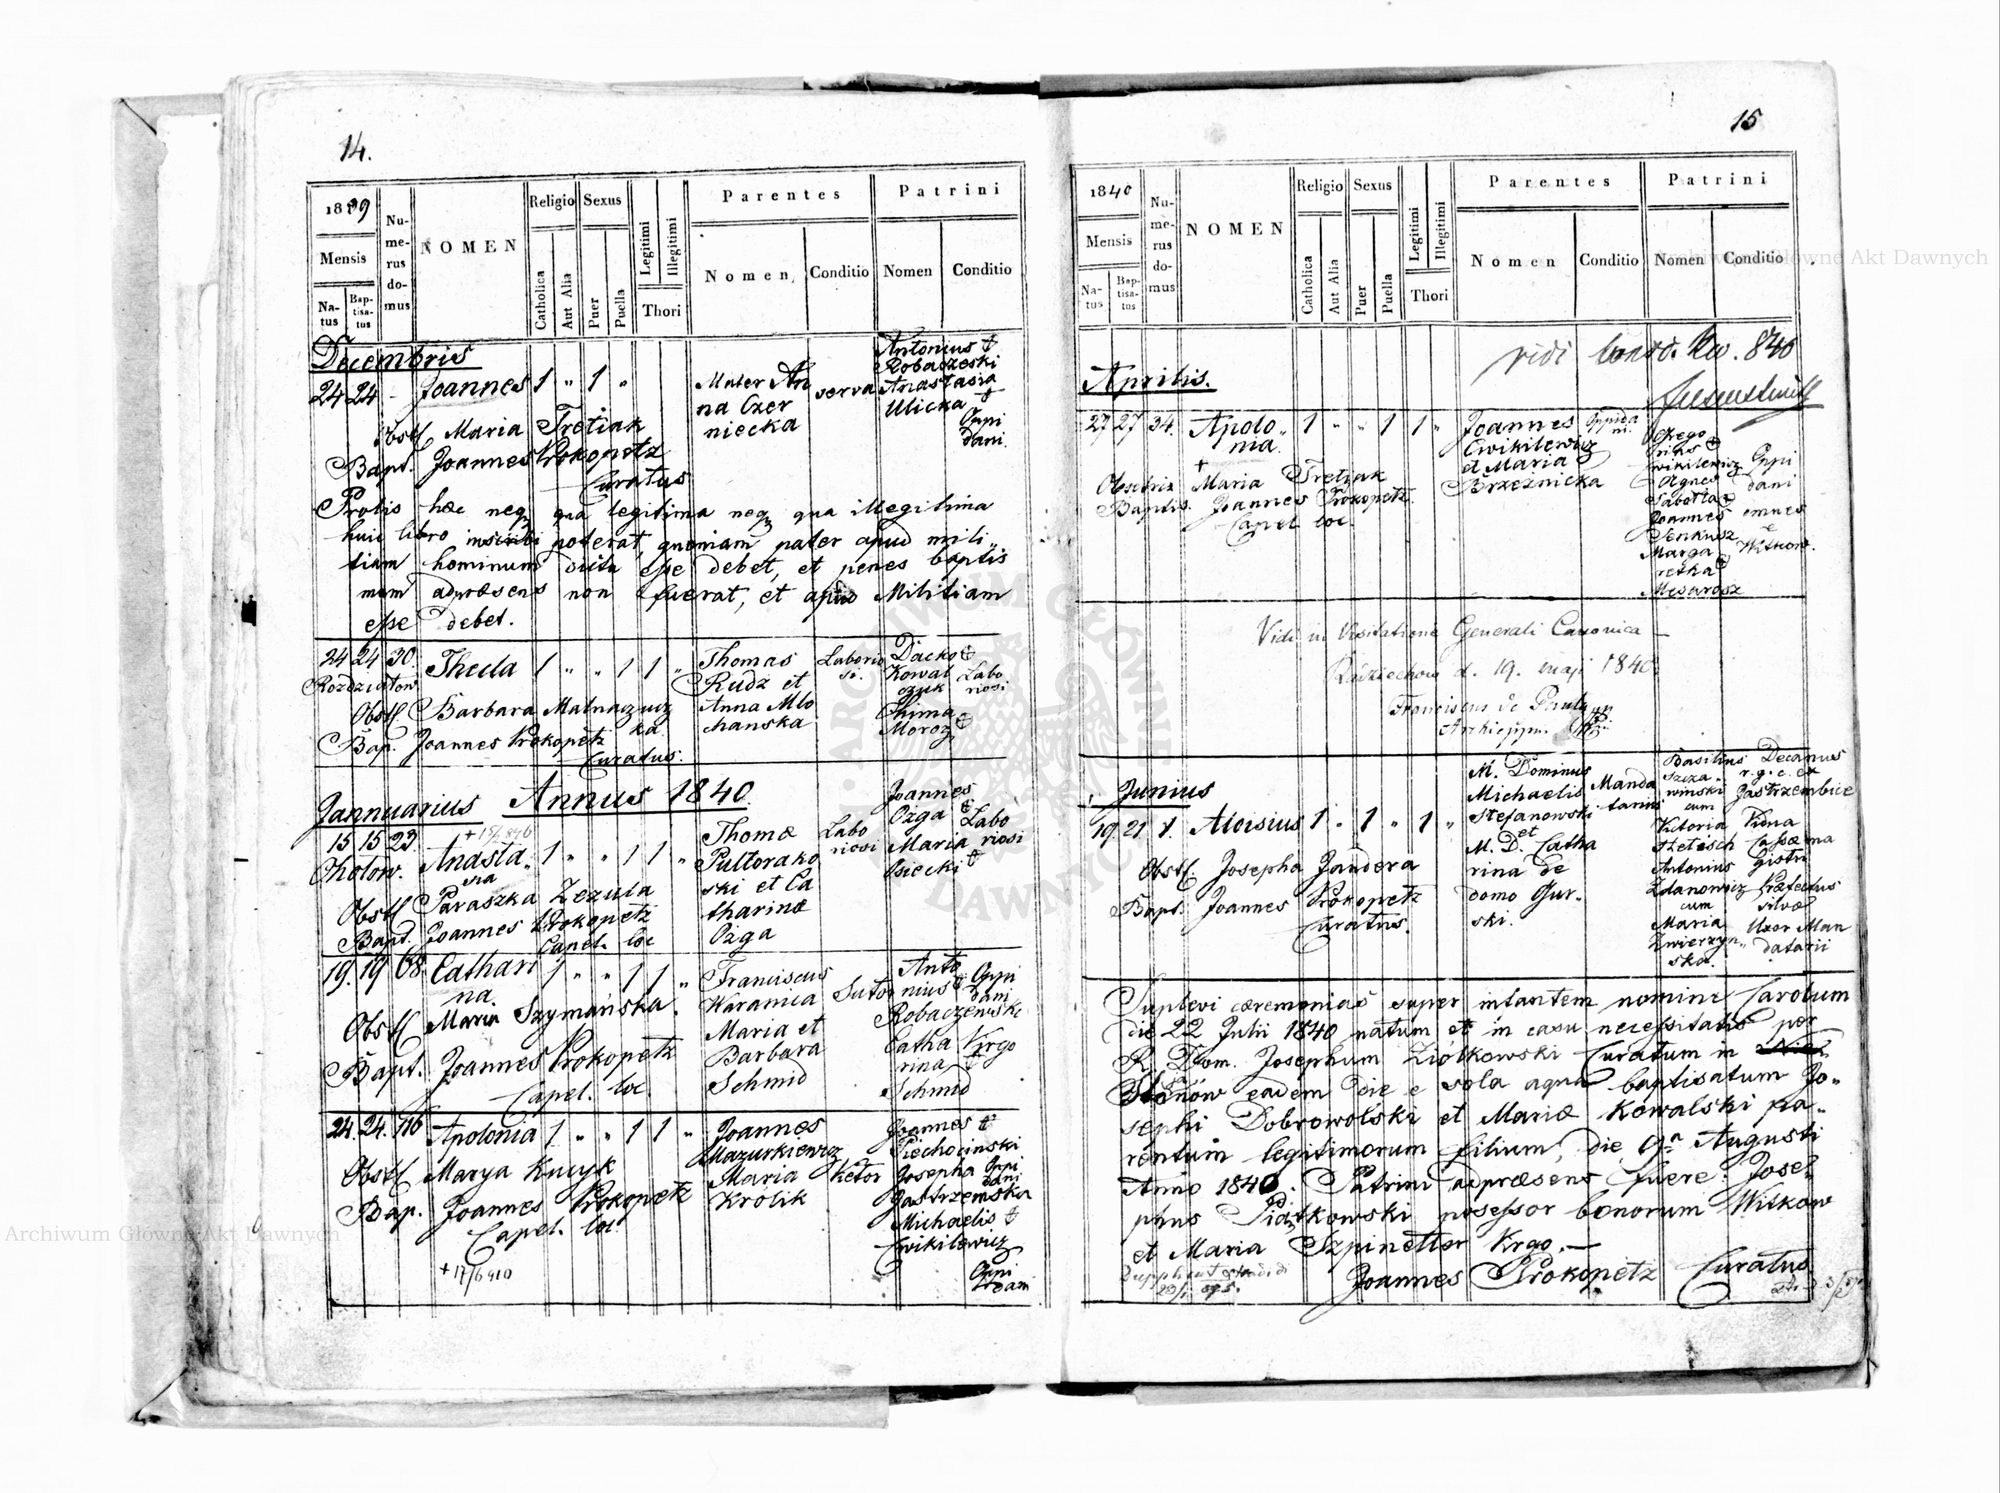 14.
1839
Mensis
Na-
tus
Bap-
tisa-
tus
Nu-
me-
rus
do-
mus
NOMEN
Religio
Catholica
Aut Alia
Sexus
Puer
Puella
Legitimi
Illegitimi
Thori
Parentes
Nomen
Conditio
Patrini
Nomen
Conditio
Decembris
24 24 - Joannes 1 " 1 "
Mater An
na Czer
niecka
serva
Antonius
Robaczeski
Anastasia
Ulicka
Oppi
dani
Obst. Maria Tretiak
Bapt. Joannes Prokopetz
Curatus
Prolis hæc neq qua legitima neq qua illegitima
huic libro inscribi poterat, quoniam pater apud mili
tiam hominum dicta esse debet, et penes baptis
mam adpræsens non fuerat, et apud Militiam
esse debet.
24 24 30 Thecla 1 " " 1 1 "
Thomas
Rudz et
Anna Mlo
chanska
Laborio
si.
Dacko
Kowal
czuk
Chima
Moroz
Labo
riosi
Obst. Barbara Malnaczucz
ka
Bap. Joannes Prokopetz
Curatus.
Jannuarius Annus 1840.
15 15 23
Cholow. Anasta
sia 1 " " 1 1 "
Thomæ
Pultorako
ski et Ca
tharinæ
Ozga
Labo
riosi
Joannes
Ozga
Maria
Osiecki
Labo
riosi
Obst. Paraszka Zezula
Bapt. Joannes Prokopetz
Capel. loc
19. 19 68. Cathari
na 1 " " 1 1 "
Franciscus
Waranica
Maria et
Barbara
Schmid
Sutor
Anto
nius
Robaczewski
Catha
rina
Schmid
Oppi
dani
Virgo
Obst. Maria Szymańska.
Bapt. Joannes Prokopetz
Capel. loc
24. 24. 116 Apolonia 1 " " 1 1 "
Joannes
Mazurkiewicz
Maria
Królik
Joannes
Piechocinski
Josepha
Jastrzemska
Michaelis
Cwikilewicz
Oppi
dani
Oppi
dani
Obst. Marya Kucyk
Bap. Joannes Prokopetz
Capel. loc
+17/6 910
15
1840
Mensis
Na-
tus
Bap-
tisa-
tus
Nu-
me-
rus
do-
mus
NOMEN
Religio
Catholica
Aut Alia
Sexus
Puer
Puella
Legitimi
Illegitimi
Thori
Parentes
Nomen
Conditio
Patrini
Nomen
Conditio
vidi 840
Aprilis.
27 27 34. Apolo
nia. 1 " " 1 1 "
Joannes
Cwikilewicz
et Maria
Brzeznicka
Oppida
ni.
Grego
rius
Cwikilewicz
Agnes
Sabotta
Joannes
Senkusz
Marga
retka
Mesarosz
Oppi
dani
omnes
e
Witkow.
Obsetrix Maria Tretiak
Baptis. Joannes Prokopetz
Capel loc.
Vidi in Visitatione Generali Canonica
d. 19. maji 1840.
Franciscus de Paula
Archieppus.
Junius
19 21 1. Aloisius 1 " 1 " 1 "
M. Dominus
Michaelis
Stefanowski
et
M. D. Catha
rina de
domo Gur
ski.
Manda
tarius
Basilius
Szcza
winski
cum
Victoria
Antonius
Zdanowicz
cum
Maria
Zwierzyn
ska.
Decanus
r. g. c. ex
Jastrzembice
Præfectus
silvæ
Uxor Man
datarii
Obst. Josepha Jandera
Bapt. Joannes Prokopetz
Curatus.
Suplevi cæremonias super infantem nomine Carolum
die 22 Julii 1840 natum et in casu necessitatis per
R. Dom. Josephum Ziółkowski Curatum in
Stojanów eadem die e sola aqua baptisatum Jo
sephi Dobrowolski et Mariæ Kowalski pa
rentum legitimorum filium, die 9a Augusti
Anno 1840. Patrini adpræsens fuere: Jose
phus Piątkowski possessor bonorum Witkow
et Maria Szpinetter Virgo.—
Joannes Prokopetz Curatus
Archiwum Główne Akt Dawnych
Archiwum Główne Akt Dawnych
ARCHIWUM GŁÓWNE
DAWNYCH